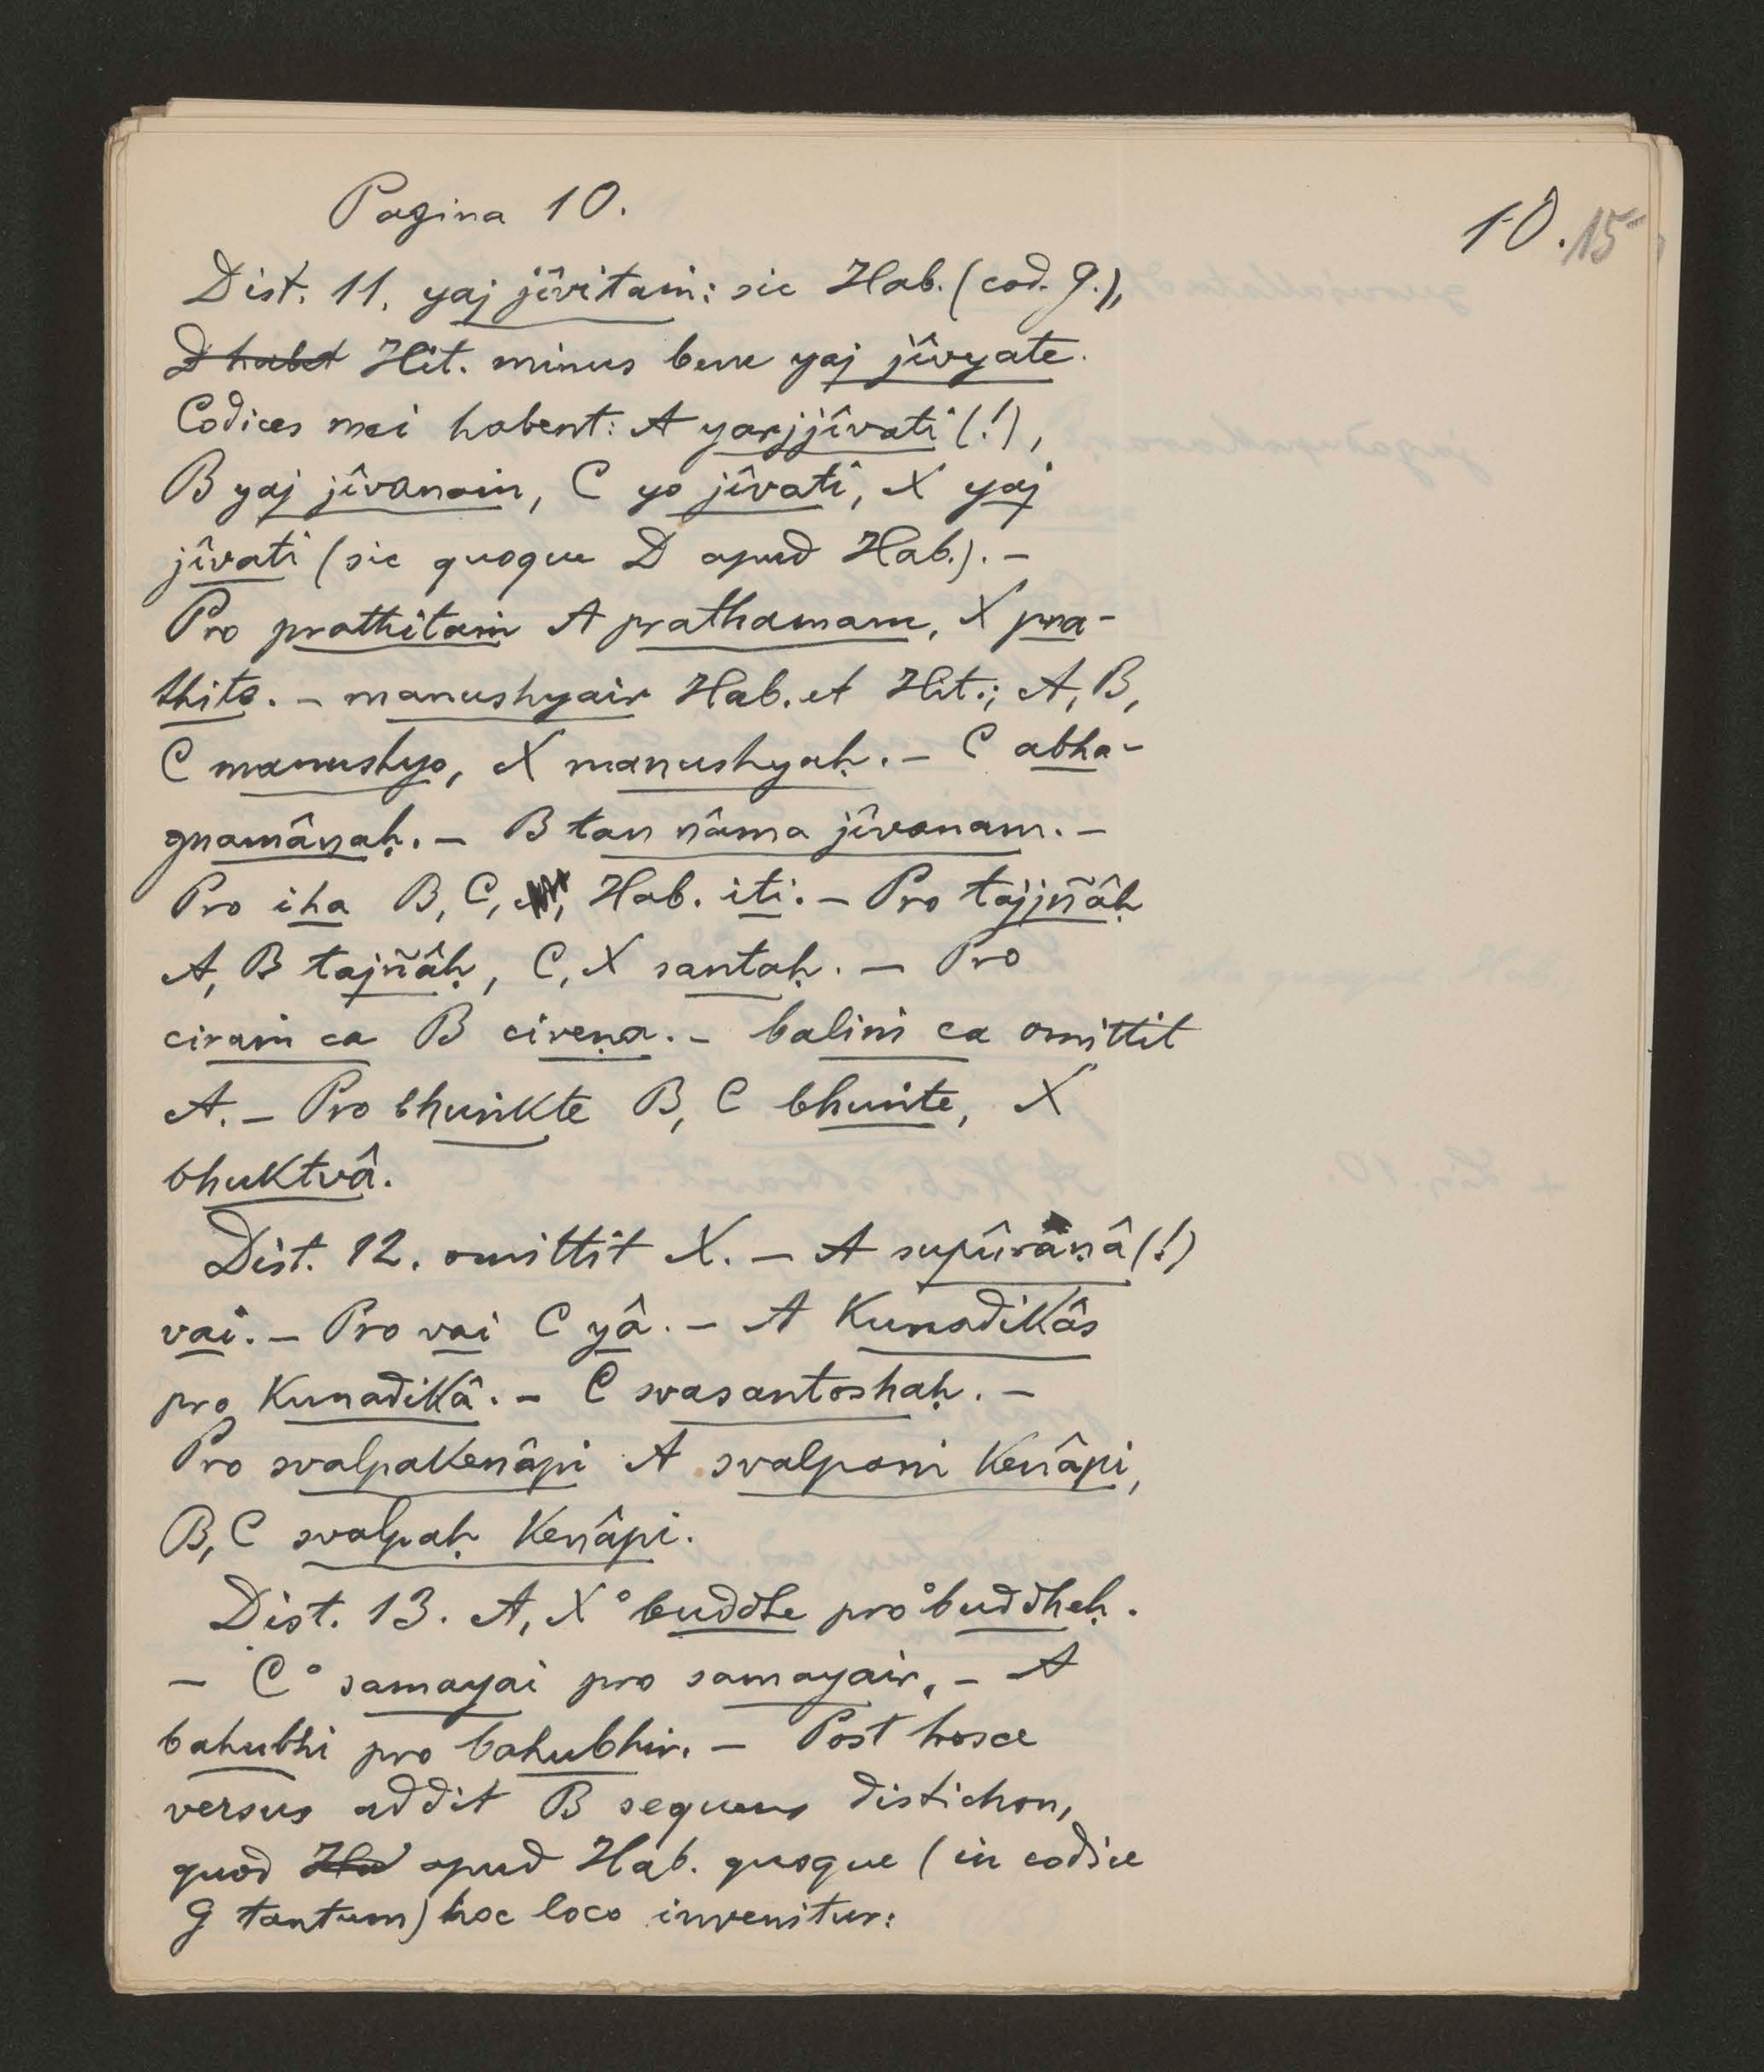 Pagina 10.
10. 15
Dist. 11. yaj jîvitaṁ: sic Hab. (cod. G.),
D habet Hit. minus bene yaj jîvyate.
Codices mei habent: A yarjjîvati (!),
B yaj jîvanaṁ, C yo jîvati, X yaj
jîvati (sic quoque D apud Hab.). –
Pro prathitaṁ A prathamam, X pra-
thito. – manushyair Hab. et Hit.; A, B,
C manushyo, X manushyaḥ. – C abha-
gnamânaḥ. – B tan nâma jîvanam. –
Pro iha B, C, Hab. iti. – Pro tajjñâḥ
A, B tajñâḥ, C, X santaḥ. – Pro
ciraṁ ca B cireṇa. – baliṁ ca omittit
A. – Pro bhuṅkte B, C bhuṁte, X
bhuktvâ.
Dist. 12. omittit X. – A supûrâṇâ (!)
vai. – Pro vai C yâ. – A kunadikâs
pro kunadikâ. – C svasantoshaḥ. –
Pro svalpakenâpi A svalpaṁ kenâpi,
B, C svalpaḥ kenâpi.
Dist. 13. A, X °buddhe pro °buddheḥ.
– C °samayai pro samayair. – A
bahubhi pro bahubhir. – Post hosce
versus addit B sequens distichon,
quod Ha apud Hab. quoque (in codice
G tantum) hoc loco invenitur: